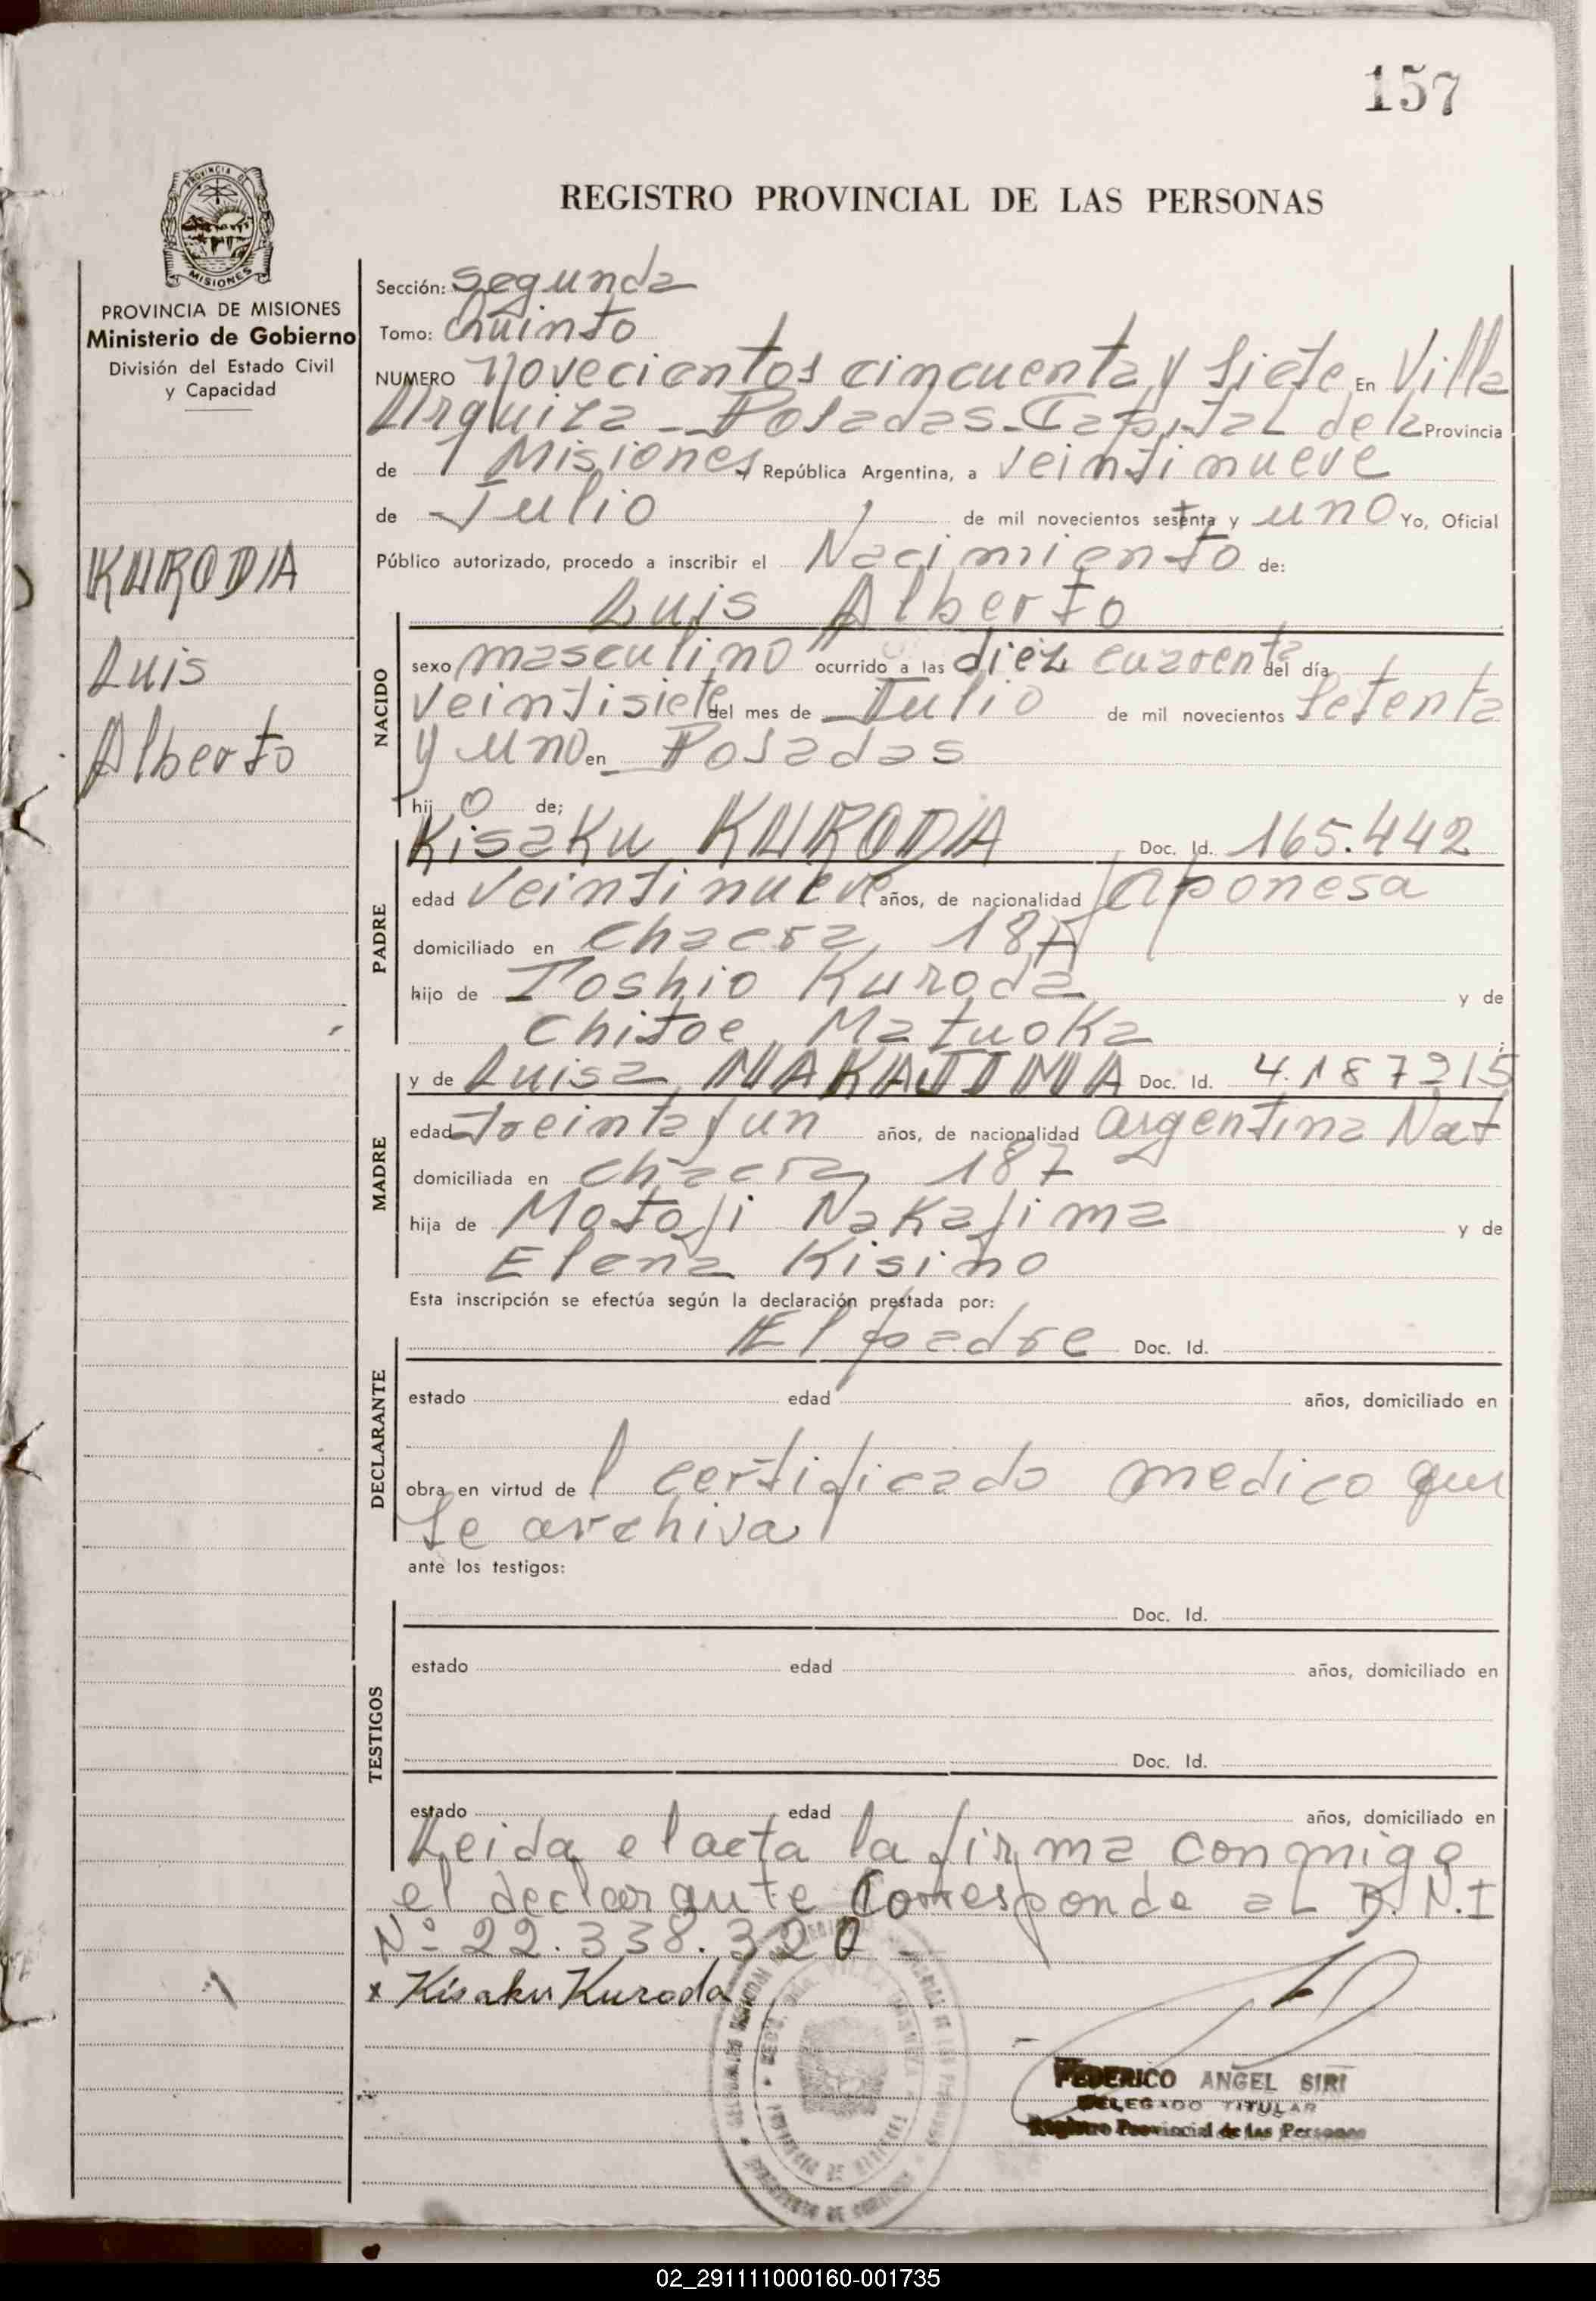 157
PROVINCIA DE
MISIONES
PROVINCIA DE MISIONES
Ministerio de Gobierno
División del Estado Civil
y Capacidad
KURODA
Luis
Alberto
REGISTRO PROVINCIAL DE LAS PERSONAS
Sección: Segunda
Tomo: Quinto
NUMERO Novecientos cincuenta y siete En Villa
Urquiza - Posadas - Capital de la Provincia
de Misiones República Argentina, a veintinueve
de Julio de mil novecientos setenta y uno Yo, Oficial
Público autorizado, procedo a inscribir el Nacimiento de:
Luis Alberto
NACIDO
sexo masculino ocurrido a las diez cuarenta del día
veintisiete del mes de Julio de mil novecientos setenta
y uno en Posadas
hij o de;
PADRE
Kisaku KURODA Doc. Id. 165.442
edad veintinueve años, de nacionalidad Japonesa
domiciliado en chacra 187
hijo de Toshio Kuroda y de
Chitoe Matuoka
MADRE
y de Luisa NAKAJIMA Doc. Id. 4.187215
edad treinta y un años, de nacionalidad argentina Nat
domiciliada en chacra 187
hija de Motoji Nakajima y de
Elena Kisino
Esta inscripción se efectúa según la declaración prestada por:
DECLARANTE
El padre Doc. Id.
estado edad años, domiciliado en
obra en virtud de l certificado medico que
se archiva
ante los testigos:
TESTIGOS
Doc. Id.
estado edad años, domiciliado en
Doc. Id.
estado edad años, domiciliado en
Leida el acta la firma conmigo
el declarante Corresponde al D.N.I
Nº 22.338.320 -
x Kisaku Kuroda
FEDERICO ANGEL SIRI
DELEGADO TITULAR
Registro Provincial de las Personas
02_291111000160-001735